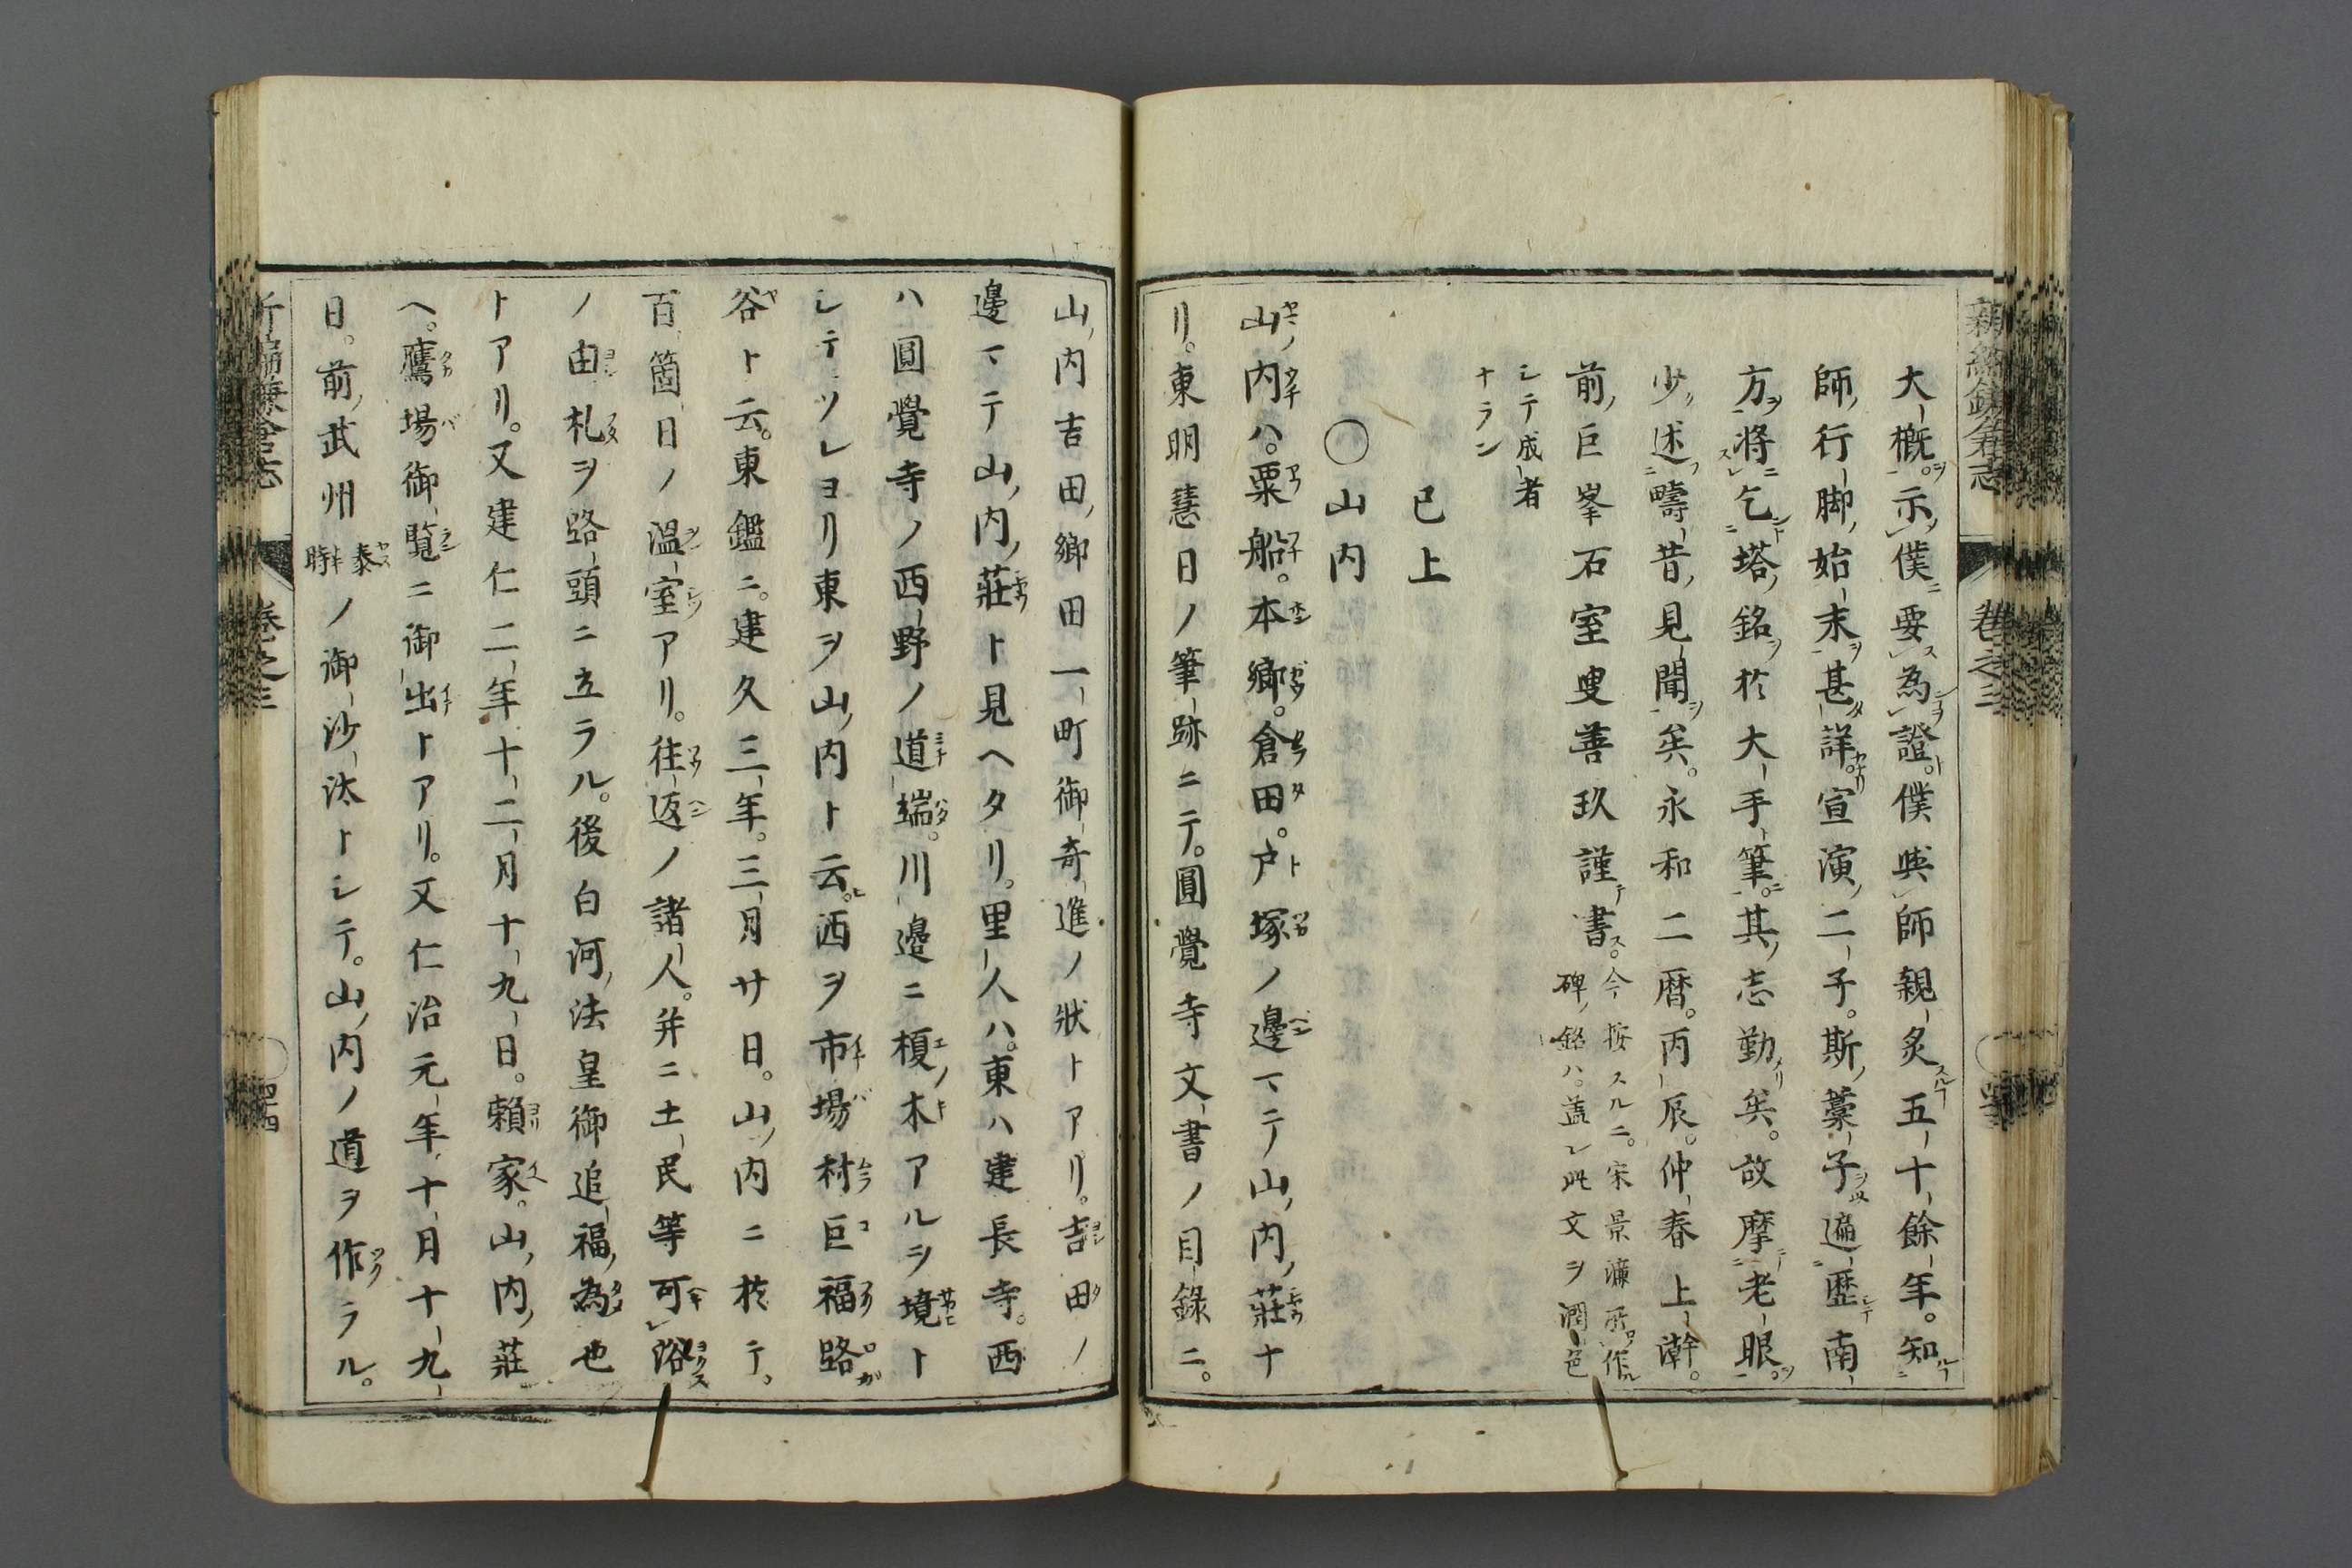 新編鎌倉志
卷之三
大概示僕要為證。僕與師親炙五十餘年。知
師行脚始末甚詳。宣演二子。斯藁子遍歷南
方將乞塔銘於大手筆。其志勤矣。故摩老眼。
少述疇昔見聞矣。永和二暦。丙辰。仲春上澣。
前巨峯石室叟善玖謹書。
今按スルニ。宋景濂所作
碑銘ハ。蓋シ此文ヲ潤色
シテ成者
ナラン
已上
〇山内
山ノ内ハ。粟船。本郷。倉田。戸塚ノ邊マテ山ノ内ノ莊ナ
リ。東明慧日ノ筆跡ニテ。圓覺寺文書ノ目録ニ。
山ノ内吉田ノ郷田一町御寄進ノ狀トアリ。吉田ノ
邊マテ山ノ内ノ莊ト見ヘタリ。里人ハ。東ハ建長寺。西
ハ圓覺寺ノ西野ノ道端。川邊ニ榎木アルヲ境ト
シテソレヨリ東ヲ山ノ内ト云ヒ。西ヲ市場村巨福路ガ
谷ト云。東鑑ニ。建久三年。三月廿日。山ノ内ニ於テ。
百箇日ノ温室アリ。往返ノ諸人。并ニ土民等可浴
ノ由札ヲ路頭ニ立ラル。後白河ノ法皇御追福ノ為也
トアリ。又建仁二年十二月十九日。頼家。山ノ内ノ莊
ヘ。鷹場御覧ニ御出トアリ。又仁治元年十月十九
日。前ノ武州泰時ノ御沙汰トシテ。山ノ内ノ道ヲ作ラル。
新編鎌倉志
卷之三
四四